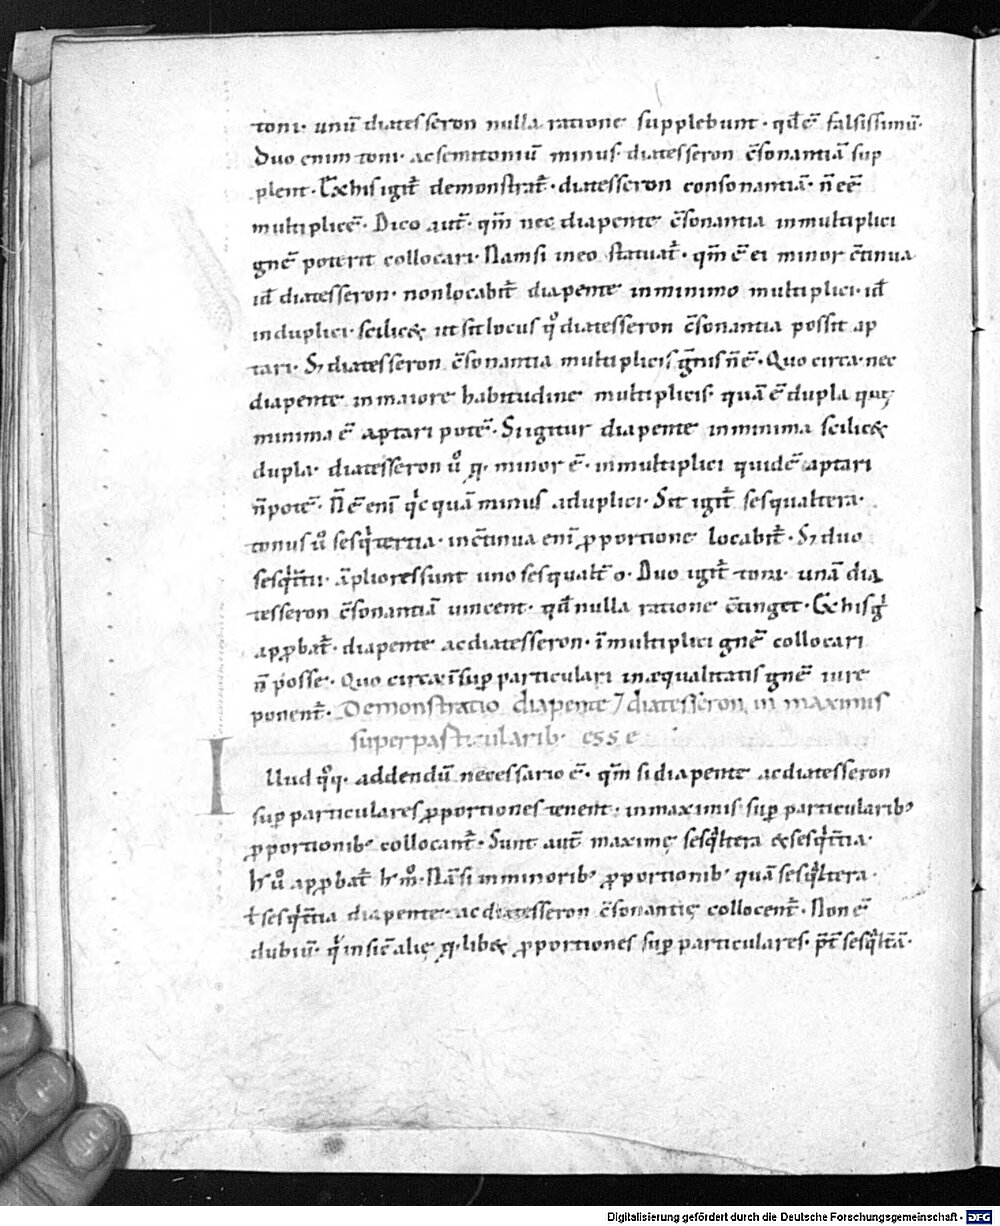 toni· unū diatesseron nulla ratione supplebunt· qđ ē falsissimū·
Duo enim toni· ac semitoniū minus· diatesseron c̄sonantiā sup
plent· Ex his igit̄ demonstrat̄· diatesseron consonantiā· n̄ eē
multiplicē· Dico aut̄· qm̄ nec diapente c̄sonantia in multiplici
gnē poterit collocari· Nam si in eo statuat̄· qm̄ ē ei minor c̄tinua
id̄ diatesseron· non locabit̄ diapente in minimo multiplici· id̄
in duplici· scilic& ut sit locus q̊ diatesseron c̄sonantia possit ap
tari· S; diatesseron c̄sonantia multiplicis gn̄is n̄ ē· Quo circa· nec
diapente in maiore habitudine multiplicis· quā ē dupla quę
minima ē aptari potē· Si igitur diapente in minima scilic&
dupla· diatesseron ů q· minor ē· in multiplici quidē aptari
n̄ potē· N̄ ē enī qc quā minus a duplici· Sit igit̄ sesqualtera·
tonus ů sesqitertia· in c̄tinua enī ꝓportione locabit̄· S; duo
sesqitii· āpliores sunt uno sesqualt̄o· Duo igit̄ toni· unā dia
tesseron c̄sonantiā uincent· qđ nulla ratione c̄tinget· Ex his gi
apꝓbat̄· diapente ac diatesseron· ī multiplici gnē collocari
n̄ posse· Quo circa ī sup̱particulari inæqualitatis gnē iure
ponent̄· Demonstratio diapente 7 diatesseron in maximis
superparticularib· esse
Illud qq· addendū necessario ē· qm̄ si diapente ac diatesseron
sup̱particulares ꝓportiones tenent· in maximis sup̱particularib;
ꝓportionib; collocant̄· Sunt aut̄ maximę sesqltera & sesqit̄tia·
h ů apꝓbat̄ h m̊· Nā si in minorib; ꝓportionib; quā sesqltera·
ł sesqit̄tia diapente· ac diatesseron c̄sonantię collocent̄· Non ē
dubiū· qi n sic̄ alię q· lib& ꝓportiones sup̱particulares· p̄t sesqlt̄ā·